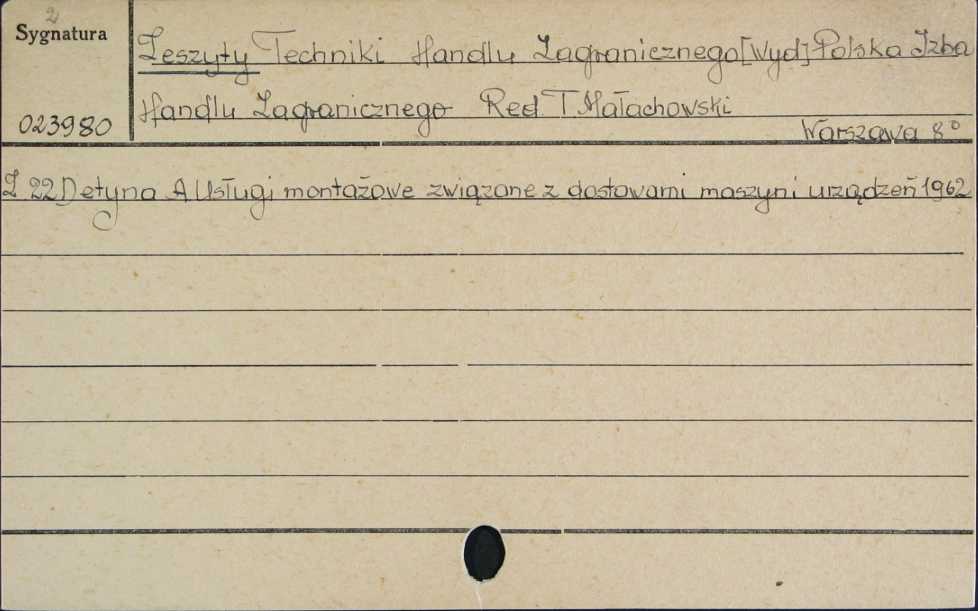 2
Sygnatura
Zeszyty Techniki Handlu Zagranicznego [Wyd] Polska Izba
023980
Handlu Zagranicznego Red. T. Małachowski
Warszawa 8°
Z 22 Detyna A Usługi montażowe związane z dostawami maszyn i urządzeń 1962